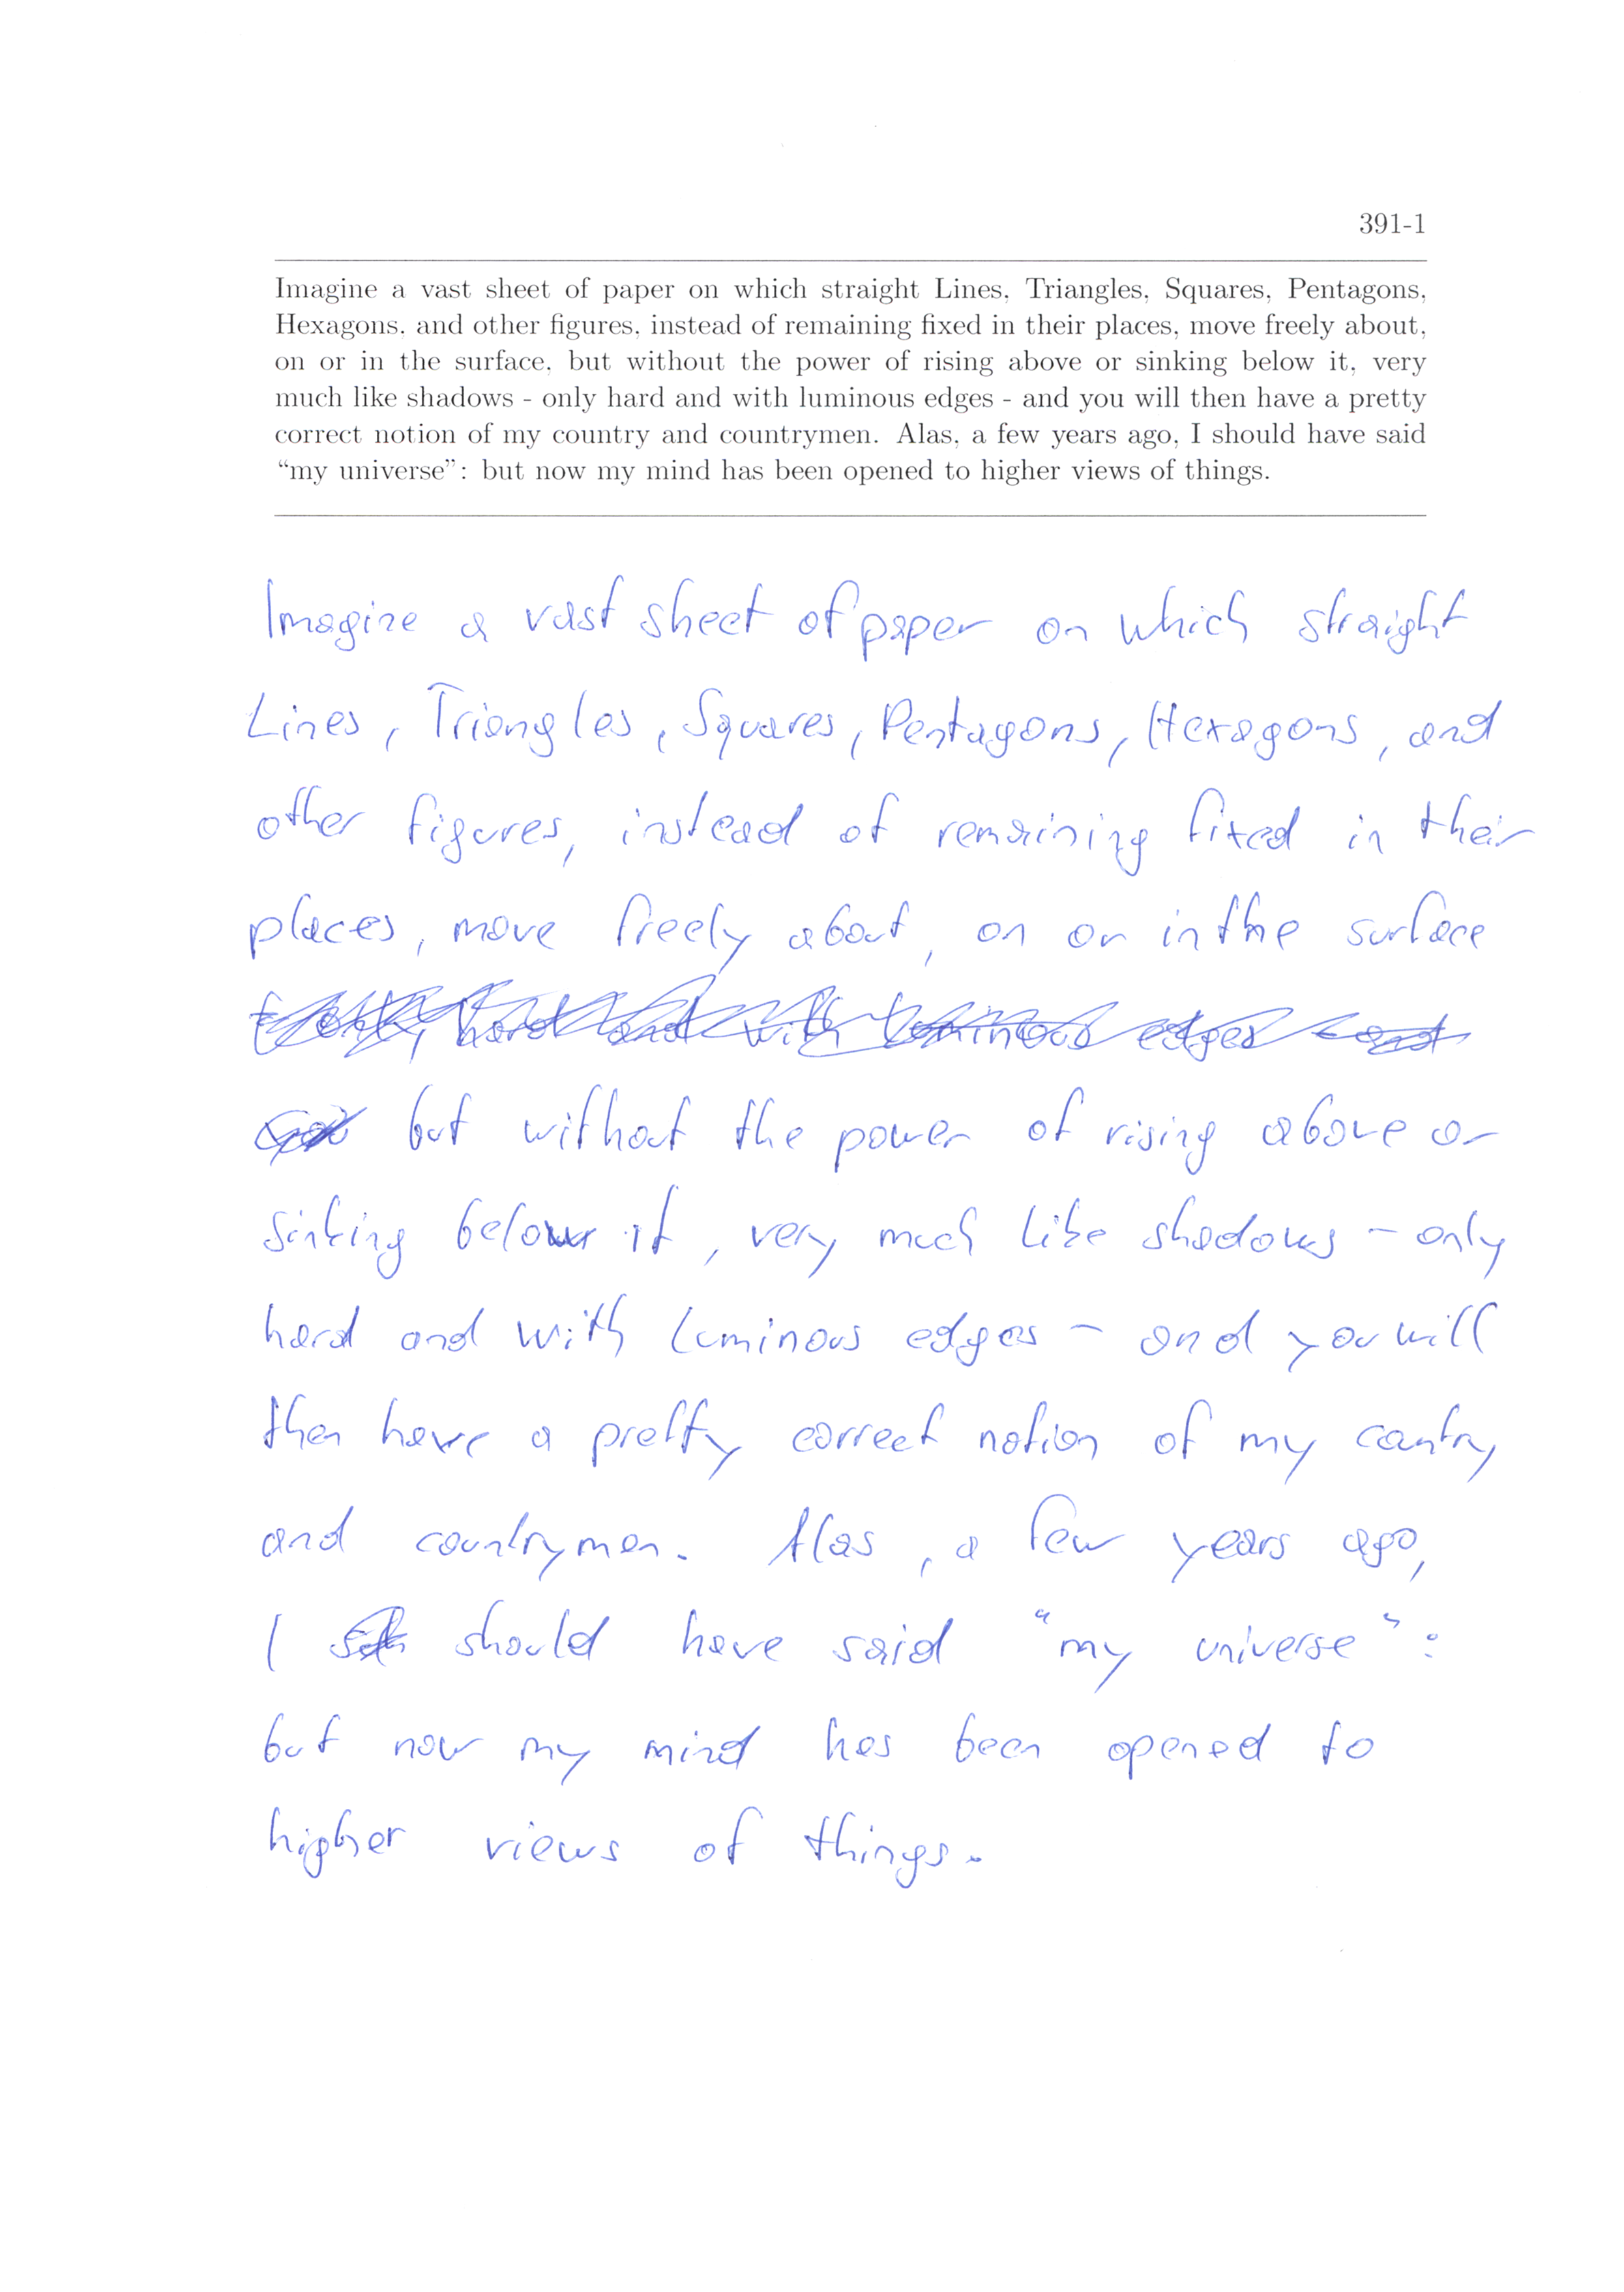 391-1
Imagine a vast sheet of paper on which straight Lines, Triangles, Squares, Pentagons,
Hexagons, and other figures, instead of remaining fixed in their places, move freely about,
on or in the surface, but without the power of rising above or sinking below it, very
much like shadows - only hard and with luminous edges - and you will then have a pretty
correct notion of my country and countrymen. Alas, a few years ago, I should have said
“my universe”: but now my mind has been opened to higher views of things.
Imagine a vast sheet of paper on which straight
Lines, Triangles, Squares, Pentagons, Hexagons, and
other figures, instead of remaining fixed in their
places, move freely about, on or in the surface
hard and with luminous edges - and
but without the power of rising above or
sinking below it, very much like shadows - only
hard and with luminous edges - and you will
then have a pretty correct notion of my country
and countrymen. Alas, a few years ago,
I should have said "my universe":
but now my mind has been opened to
higher views of things.